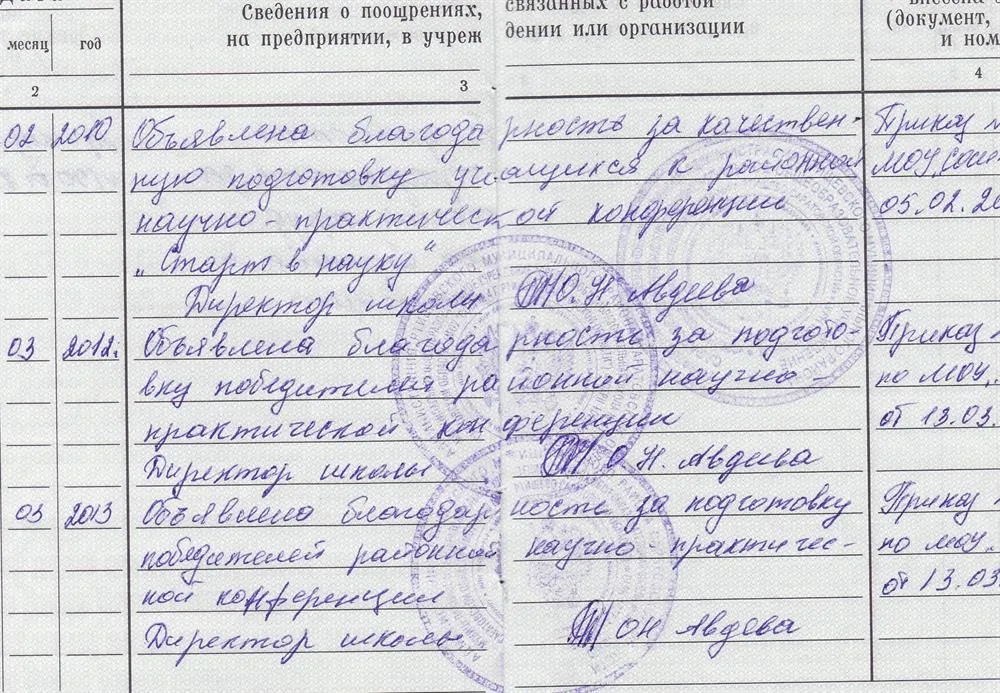 Сведения о поощрениях, связанных с работой внесена
месяц год на предприятии, в учреж дении или организации (документ,
и ном
2 3 4
02 2010 Объявлена благода рность за качествен- Приказ
ную подготовку учащихся к районной МОУ
научно-практической конференции 05.02.20
„Старт в науку"
Директор школы О.Н. Авдеева
03 2012г. Объявлена благода рность за подгото- Приказ
вку победителя районной научно- по МОУ
практической конференции от 13.03.
Директор школы О Н. Авдеева
03 2013 Объявлена благодар ность за подготовку Приказ
победителей районной научно-практичес- по МОУ
кой конференции от 13.03
Директор школы ОН Авдеева